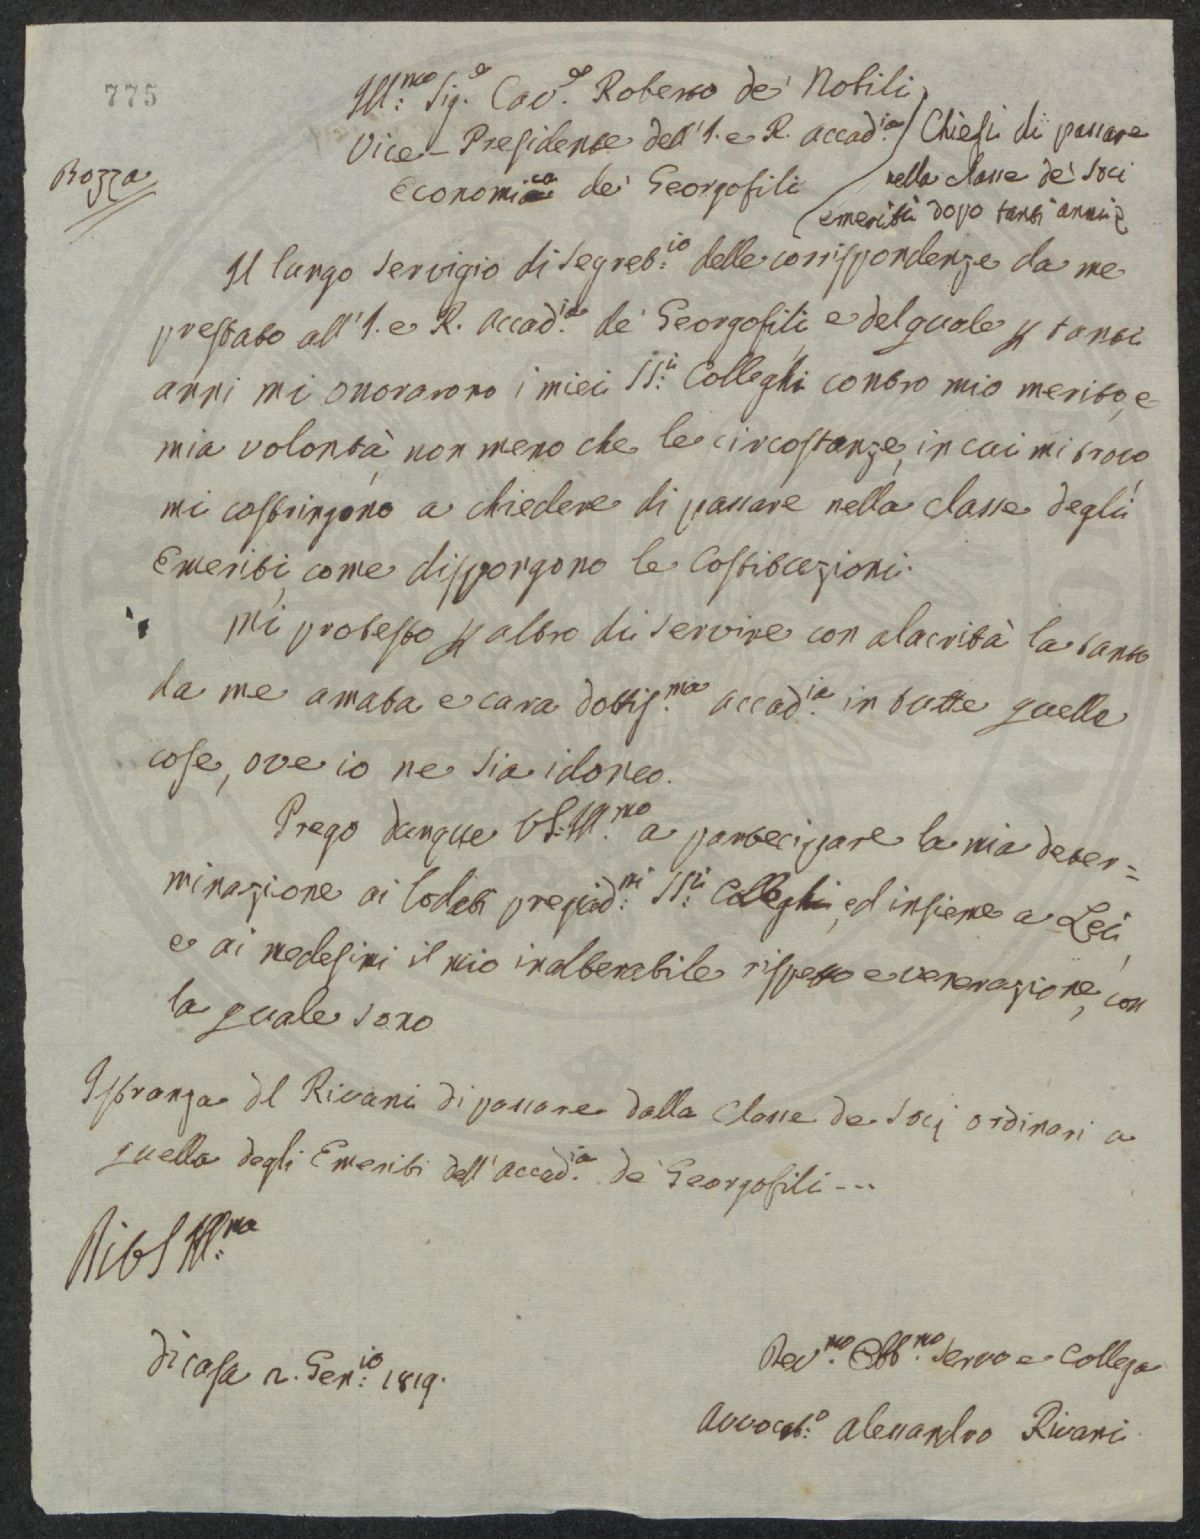 775
Ill:mo Sig.e Cav.e Roberto de' Nobili
Vice-Presidente dell'I. e R. Accad:ia
Economica de' Georgofili
Bozza
Chiesi di passare
nella classe de' Soci
emeriti dopo tanti anni
Il lungo servigio di Segret:io delle corrispondenze da me
prestato all'I. e R. Accad:ia de' Georgofili, e del quale p tanti
anni mi onorarono i miei SS:i Colleghi contro mio merito, e
mia volontà, non meno che le circostanze, in cui mi trovo
mi costringono a chiedere di passare nella classe degli
Emeriti, come dispongono le Costituzioni.
Mi protesto p altro di servire con alacrità la tanto
da me amata e cara dottis:ma Accad:ia in tutte quelle
cose, ove io ne sia idoneo.
Prego dunque VS. Ill:mo a partecipare la mia deter=
minazione ai lodati pregiad:mi SS:ri Colleghi, ed insieme a Lei,
e ai medesimi il mio inalterabile rispetto e venerazione, con
la quale sono
Istranza del Rivani di passare dalla Classe de Socj ordinari a
quella degli Emeriti dell'Accad:ia de' Georgofili ---
Di VS Ill:ma
Di casa 2. Gen:io 1819.
Dev:mo Obb:mo Servo e Collega
Avvocat:o Alessandro Rivani